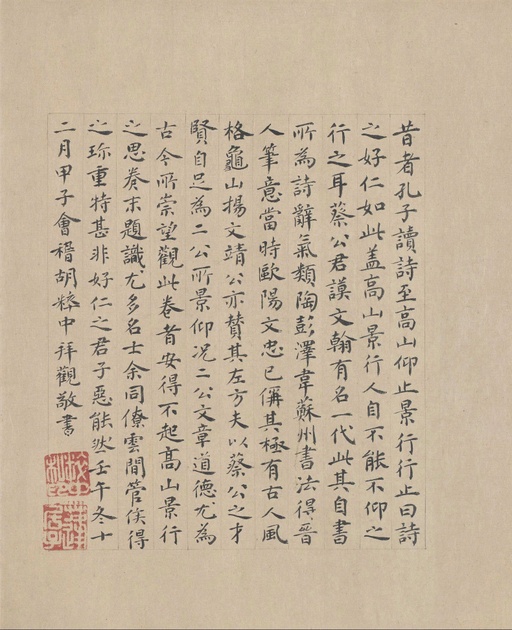 昔者孔子讀詩至高山仰止景行行止曰詩
之好仁如此盖高山景行人自不能不仰之
行之耳蔡公君謨文翰有名一代此其自書
所為詩辭氣類陶彭澤韋蘇州書法得晉
人筆意當時歐陽文忠已稱其極有古人風
格龜山楊文靖公亦贊其左方夫以蔡公之才
賢自足為二公所景仰况二公文章道德尤為
古今所崇望觀此卷者安得不起高山景行
之思卷末題識尤多名士余同僚雲間管侯得
之珎重特甚非好仁之君子惡能然壬午冬十
二月甲子會稽胡粹中拜觀敬書